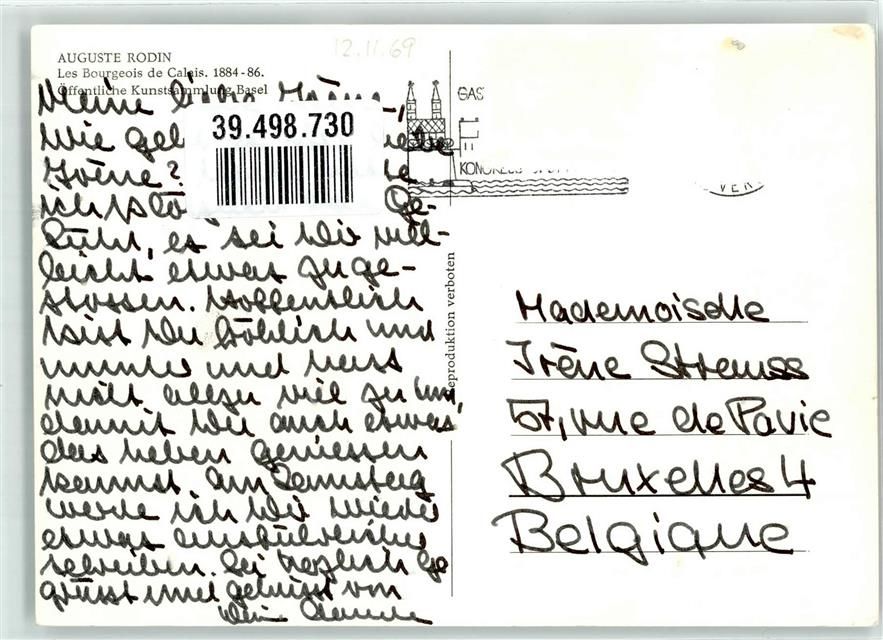 12.11.69
AUGUSTE RODIN
Les Bourgeois de Calais. 1884-86.
Öffentliche Kunstsammlung Basel
39.498.730
Meine liebe Irène,
Wie geht
Irène?
ich plötz Ge-
fühl, es sei Dir viel-
leicht etwas zuge-
stossen. Hoffentlich
bist Du fröhlich und
munter und hast
nicht allzu viel zu tun,
damit Du auch etwas
das Leben geniessen
kannst. Am Samstag
werde ich Dir wieder
etwas ausführlicher
schreiben. Sei herzlich ge
grüsst und geküsst von
Dein
GAS
KONGRESS
VER
Reproduktion verboten
Mademoiselle
Irène Strauss
57, rue de Pavie
Bruxelles 4
Belgique